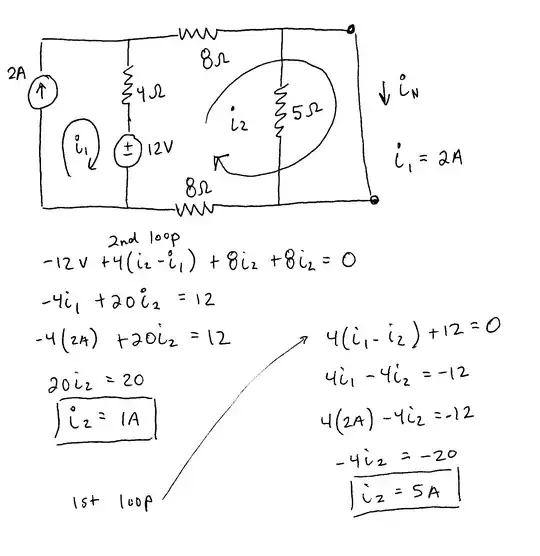 8Ω
2A
4Ω
5Ω
i₂
↓ iN
i₁
± 12V
i₁ = 2A
8Ω
2nd loop
-12V + 4(i₂ - i₁) + 8i₂ + 8i₂ = 0
-4i₁ + 20i₂ = 12
-4(2A) + 20i₂ = 12
20i₂ = 20
i₂ = 1A
1st loop
4(i₁ - i₂) + 12 = 0
4i₁ - 4i₂ = -12
4(2A) - 4i₂ = -12
-4i₂ = -20
i₂ = 5A